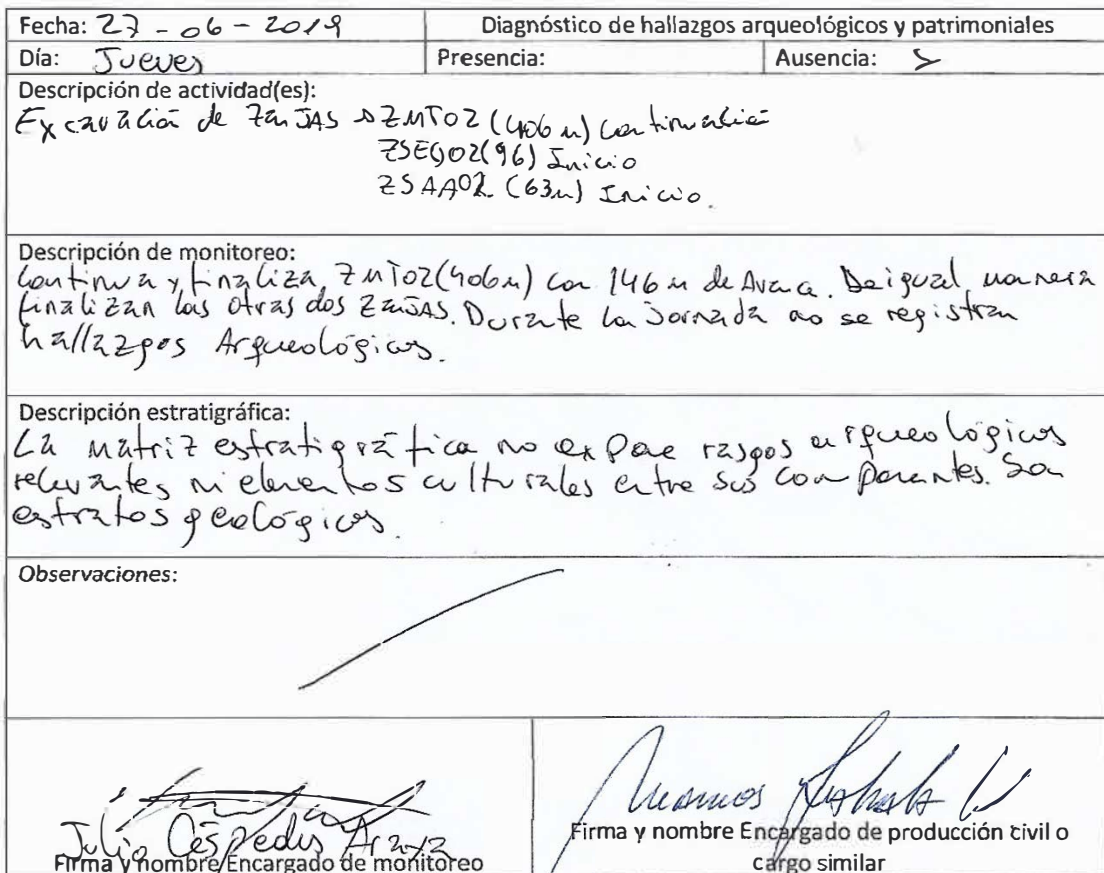 Fecha: 27-06-2019 Diagnóstico de hallazgos arqueológicos y patrimoniales
Día: Jueves Presencia: Ausencia:
Descripción de actividad(es):
Excavación de zanjas ZMT02 (406 m) continuación
ZSEG02(96) Inicio
ZSAA02 (63m) Inicio.
Descripción de monitoreo:
Continua y finaliza ZMT02(406m) con 146 m de Avance. De igual manera
finalizan las otras dos zanjas. Durante la jornada no se registran
hallazgos Arqueológicos.
Descripción estratigráfica:
La matriz estratigráfica no expone rasgos arqueológicos
relevantes ni elementos culturales entre sus componentes. Son
estratos geológicos.
Observaciones:
Julio Céspedes Araya
Firma y nombre Encargado de monitoreo
Firma y nombre Encargado de producción civil o
cargo similar